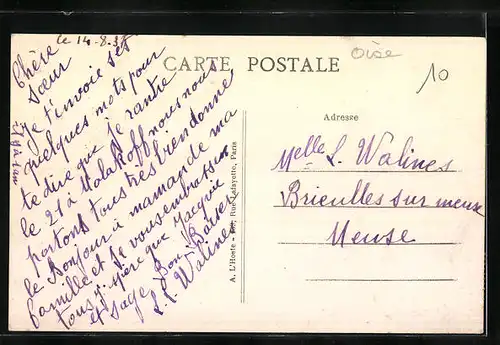 le 14-8-38
Chère
Sœur
Je t'envoie ses
quelques mots pour
te dire que je rantre
le 21 a Malakoff nous nous
portons tous tres bien donne
le Bonjour à maman de ma
famille et je vous embrasse
tous j'espère que Jacquie
et sage Bon Baiser
L. Walines
CARTE POSTALE
Oise
10
Adresse
Melle L. Walines
Brieulles sur meuse
Meuse
A. L'Hoste - Rue Lafayette, Paris